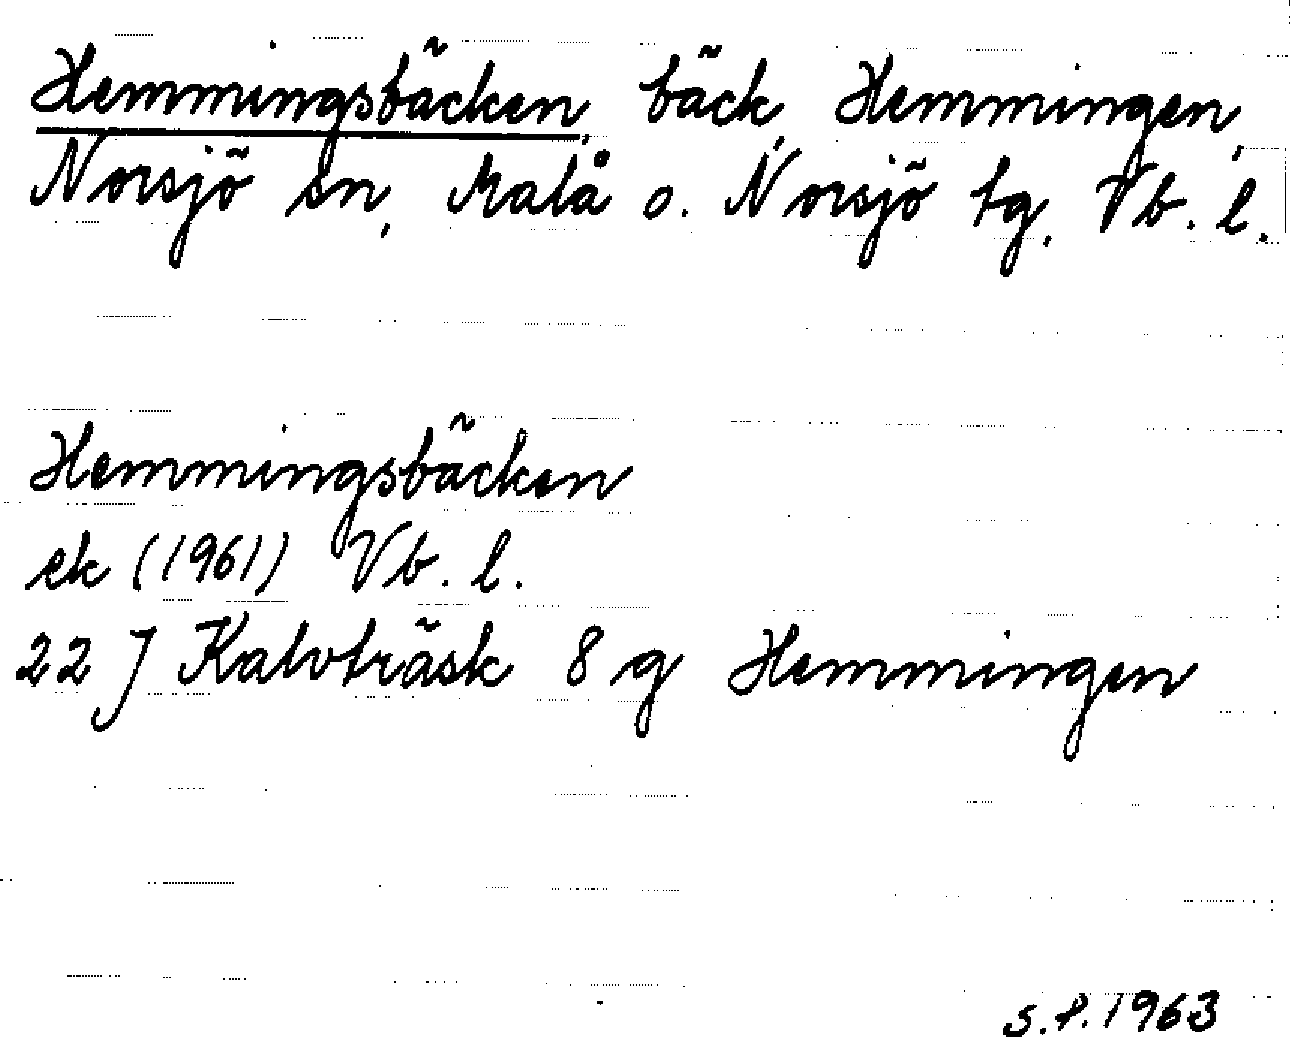 Hemmingsbäcken, bäck, Hemmingen,
Norsjö sn, Malå o. Norsjö tg, Vb. l.
Hemmingsbäcken
ek (1961) Vb. l.
22 J Kalvträsk 8 g Hemmingen
S.P. 1963